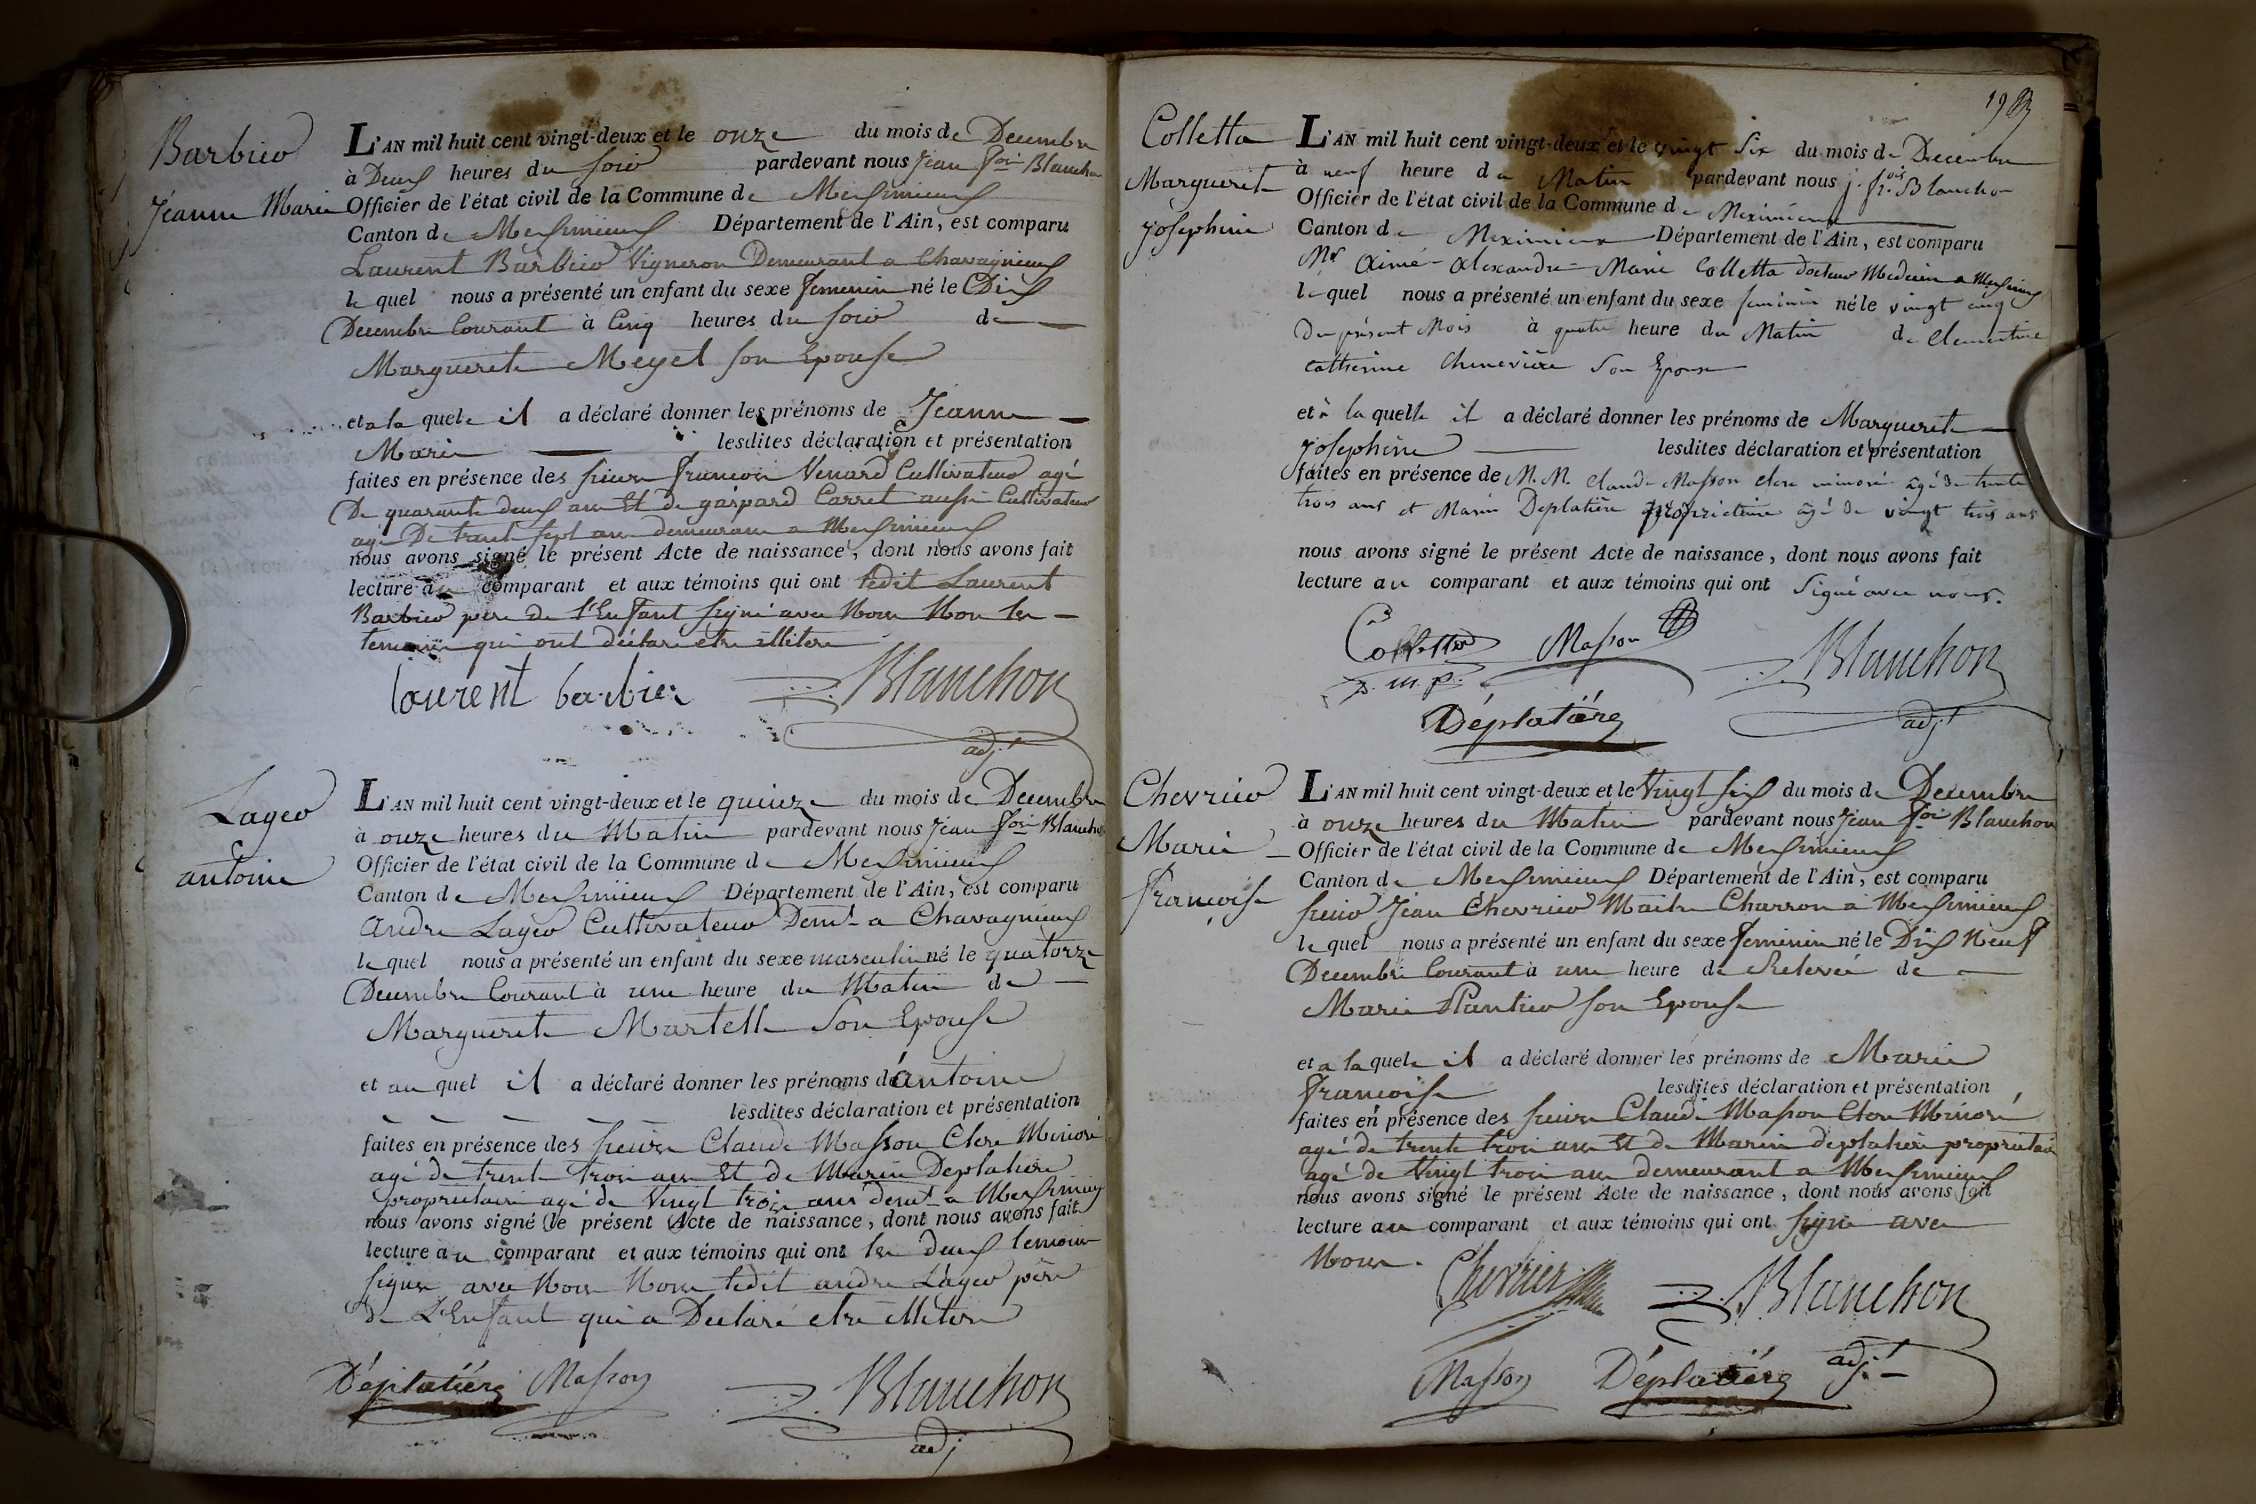 Barbier
Jeanne Marie
L'AN mil huit cent vingt-deux et le onze du mois de Decembre
à Deux heures du soir pardevant nous Jean fois Blanchon
Officier de l'état civil de la Commune de Meximieux
Canton de Meximieux Département de l'Ain, est comparu
Laurent Barbier Vigneron Demeurant a Chavagnieux
lequel nous a présenté un enfant du sexe femenin né le Dix
Decembre Courant à Cinq heures du soir de
Marguerite Meyel son Epouse
et a la quele il a déclaré donner les prénoms de Jeanne
Marie lesdites déclaration et présentation
faites en présence des sieurs francois Venard Cultivateur agé
De quarante deux ans Et de gaspard Carret aussi Cultivateur
agé De trente sept ans demeurans a Meximieux
nous avons signé le présent Acte de naissance, dont nous avons fait
lecture au comparant et aux témoins qui ont ledit Laurent
Barbier pere de l'Enfant signé avec Nous Non les
temoins qui ont déclaré etre illitere
laurent barbier Blanchon
adjt
Lager
antoine
L'AN mil huit cent vingt-deux et le quinze du mois de Decembre
à onze heures du Matin pardevant nous Jean fois Blanchon
Officier de l'état civil de la Commune de Meximieux
Canton de Meximieux Département de l'Ain, est comparu
andre Lager Cultivateur Demt a Chavagnieux
lequel nous a présenté un enfant du sexe masculin né le quatorze
Decembre Courant à une heure du Matin de
Marguerite Martelle Son Epouse
et au quel il a déclaré donner les prénoms de antoine
lesdites déclaration et présentation
faites en présence des sieurs Claude Masson Clerc Minoré
agé de trente trois ans Et de Marin Deplatiere
proprietaire agé de Vingt trois ans demt a Meximieux
nous avons signé le présent Acte de naissance, dont nous avons fait
lecture au comparant et aux témoins qui ont les deux temoins
signés avec Nous Non ledit andre Lager père
de L'Enfant qui a Declaré etre illitere
Déplatière Masson Blanchon
adj
198
Colletta
Marguerite
Josephine
L'AN mil huit cent vingt-deux et le vingt six du mois de Decembre
à neuf heure du Matin pardevant nous j. fr.ois Blanchon
Officier de l'état civil de la Commune de Meximieux
Canton de Meximieux Département de l'Ain, est comparu
Mr Aimé Alexandre Marie Colletta docteur Medecin a Meximieux
lequel nous a présenté un enfant du sexe feminin né le vingt cinq
Du présent Mois à quatre heure du Matin de Clementine
catherine Chenevière Son Epouse
et à la quelle il a déclaré donner les prénoms de Marguerite
Josephine lesdites déclaration et présentation
faites en présence de M.M. Claude Masson clerc minoré âgé de trente
trois ans et Marin Deplatière propriétaire âgé de vingt trois ans
nous avons signé le présent Acte de naissance, dont nous avons fait
lecture au comparant et aux témoins qui ont Signé avec nous.
Colletta Masson Blanchon
D. m. p. adjt
Déplatière
Chevrier
Marie
françoise
L'AN mil huit cent vingt-deux et le Vingt six du mois de Decembre
à onze heures du Matin pardevant nous Jean fois Blanchon
Officier de l'état civil de la Commune de Meximieux
Canton de Meximieux Département de l'Ain, est comparu
sieur Jean Chevrier Maitre Charron a Meximieux
lequel nous a présenté un enfant du sexe feminin né le Dix Neuf
Decembre Courant à une heure de Relevée de
Marie Plantier son Epouse
et a la quele il a déclaré donner les prénoms de Marie
francoise lesdites déclaration et présentation
faites en présence des sieurs Claude Masson Clerc Minoré
agé de trente trois ans Et de Marin deplatiere proprietaire
agé de Vingt trois ans demeurant a Meximieux
nous avons signé le présent Acte de naissance, dont nous avons fait
lecture au comparant et aux témoins qui ont signé avec
Nous.
Chevrier Blanchon
Masson Déplatière adjt